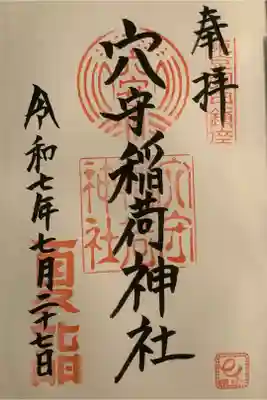 奉拝
穴守稲荷神社
令和七年七月二十七日
夏詣
穴守
神社